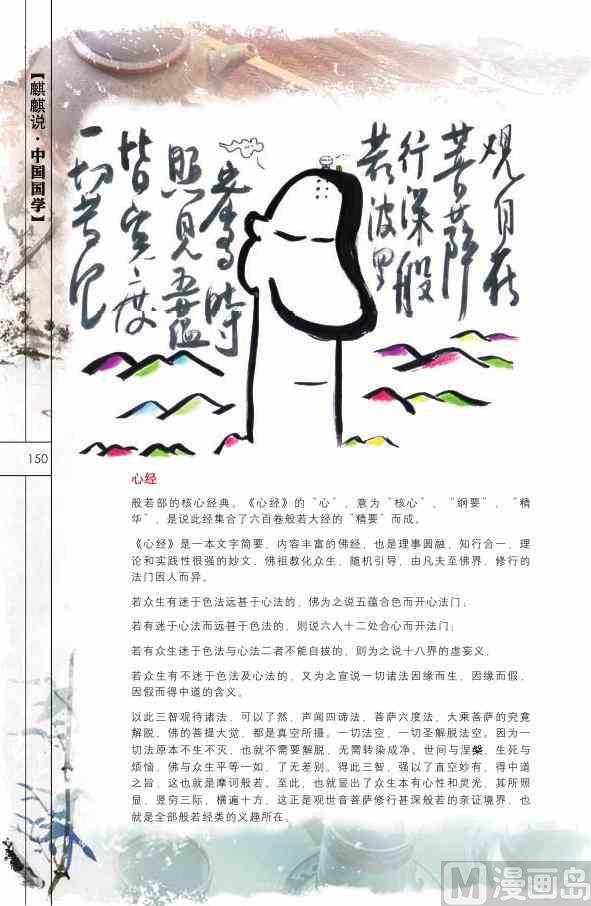 【麒麒说·中国国学】
观自在
菩萨
行深般
若波罗
蜜多時
照见五蕴
皆空度
一切苦厄
150
心经
般若部的核心经典。《心经》的“心”，意为“核心”、“纲要”、“精
华”，是说此经集合了六百卷般若大经的“精要”而成。
《心经》是一本文字简要，内容丰富的佛经，也是理事圆融，知行合一，理
论和实践性很强的妙文，佛祖教化众生，随机引导，由凡夫至佛界，修行的
法门因人而异。
若众生有迷于色法远甚于心法的，佛为之说五蕴合色而开心法门；
若有迷于心法而远甚于色法的，则说六入十二处合心而开法门；
若有众生迷于色法与心法二者不能自拔的，则为之说十八界的虚妄义。
若众生有不迷于色法及心法的，又为之宣说一切诸法因缘而生，因缘而假，
因假而得中道的含义。
以此三智观待诸法，可以了然，声闻四谛法，菩萨六度法，大乘菩萨的究竟
解脱，佛的菩提大觉，都是真空所摄。一切法空，一切圣解脱法空。因为一
切法原本不生不灭，也就不需要解脱，无需转染成净。世间与涅槃，生死与
烦恼，佛与众生平等一如，了无差别。得此三智，强以了直空妙有，得中道
之旨，这也就是摩诃般若。至此，也就显出了众生本有心性和灵光，其所照
显，竖穷三际，横遍十方，这正是观世音菩萨修行甚深般若的亲证境界，也
就是全部般若经类的义趣所在。
M 漫画岛